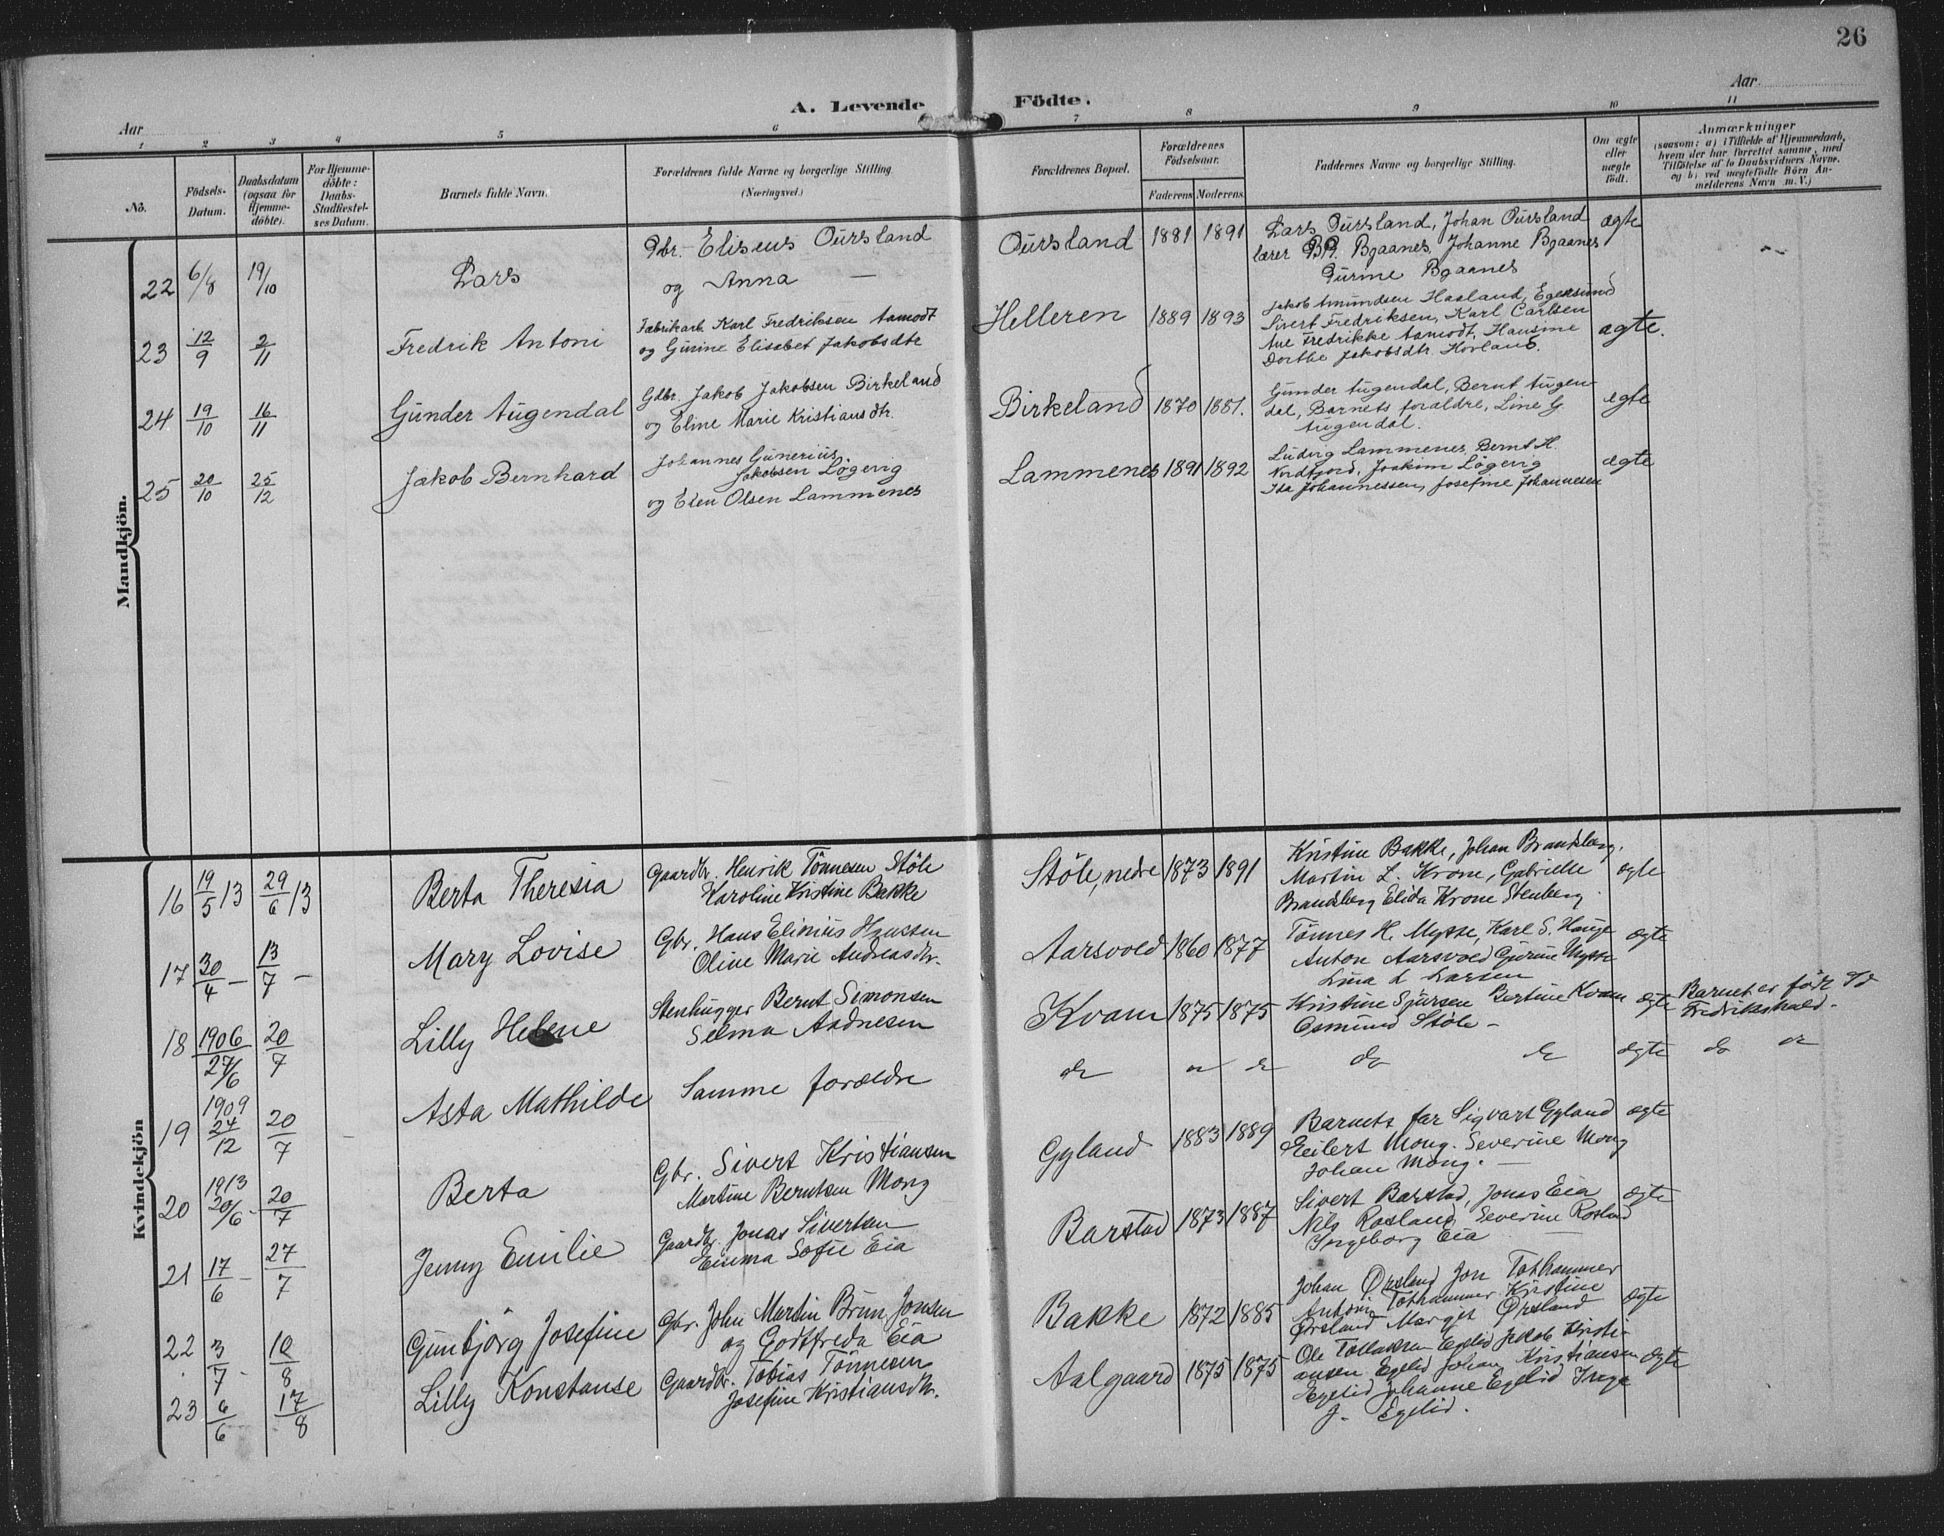 26
A. Levende Födte.
Aar
Aar
1 2 3 4 5 6 7 8 9 10 11
No.
Födsels-Datum.
Daabsdatum (ogsaa for Hjemme-döbte).
For Hjemme-döbte: Daabs-Stadfestel-ses Datum.
Barnets fulde Navn.
Forældrenes fulde Navne og borgerlige Stilling (Næringsvei.)
Forældrenes Bopæl.
Forældrenes Födselsaar.
Faderens Moderens
Faddernes Navne og borgerlige Stilling.
Om ægte eller uægte födt.
Anmærkninger
(saasom: a) i Tilfælde af Hjemmedaab, hvem der har forrettet samme, med Tilföielse af to Daabsvidners Navne, og b) ved uægtefödte Börn An-melderens Navn m. V.)
Mandkjön.
22 6/8 19/10 Lars
Gbr. Eliseus Oursland
og Anna —
Oursland 1881 1891
Lars Oursland, Johan Oursland
lærer B. Bgaanes, Johanne Bgaanes
Gurine Bgaanes
ægte
23 12/9 2/11 Fredrik Antoni
Fabrikarb. Karl Fredriksen Aamodt
og Gurine Elisabet Jakobsdtr
Helleren 1889 1893
Jakob Amundsen Hasland, Egersund
Sivert Fredriksen, Karl Carlsen
Ane Fredrikke Aamodt, Hansine
Dorthe Jakobsdtr. Hovland.
ægte.
24 19/10 16/11 Gunder Augendal
Gdbr. Jakob Jakobsen Birkeland
og Eline Marie Kristiansdtr.
Birkeland 1870 1881.
Gunder Augendal, Bernt Augen-
dal, Barnets foraldre, Line G.
Augendal.
ægte
25 20/10 25/12 Jakob Bernhard
Johannes Gunerius
Jakobsen Lögevig
og Elen Olsen Lammenes
Lammenes 1891 1892
Ludvig Lammenes, Bernt H.
Nordfjord, Joakim Lögevig
Isa Johannessen, Josefine Johannesen
ægte
Kvindekjön
16 19/5 13 29/6 13 Berta Theresia
Gaardbr. Henrik Tönnesen Stöle
Karoline Kristine Bakke
Stöle, nedre 1873 1891
Kristine Bakke, Johan Brandsberg.
Martin L. Krone, Gabrielle
Brandsberg Elida Krone Stenberg
ægte
17 30/4 — 13/7 — Mary Lovise
Gbr. Hans Elinius Hanssen
Oline Marie Andreasdtr.
Aarsvold 1860 1877
Tönnes H. Mysse, Karl S. Hauge
Anton Aarsvold Gurine Mysse
Lina L Larsen
ægte
18 1906 27/6 20/7 Lilly Helene
Stenhugger Bernt Simonsen
Selma Aadnesen
Kvam 1875 1875
Kristine Sjursen Bertine Kvam
Osmund Stöle —
ægte
Barnet er föde i
Fredrikshald.
19 1909 24/12 20/7 Asta Mathilde
Samme forældre
do do do do do ægte do do
20 1913 20/6 - 20/7 Berta
Gbr. Sivert Kristiansen
Martine Berntsen Mong
Gyland 1883 1889
Barnets far Sigvart Gyland
Eilert Mong. Severine Mong
Johan Mong. —
ægte
21 17/6 — 27/7 Jenny Emilie
Gaardbr. Jonas Sivertsen
Emma Sofie Eia
Barstad 1873 1887
Sivert Barstad, Jonas Eia
Nils Rosland Severine Rosland
Ingeborg Eia —
ægte
22 3/7 - 10/8 Gunbjörg Josefine
Gbr. John Martin Brun Jonsen
og Godtfreda Eia
Bakke 1872 1885
Johan Örsland Jon Tothammer
Antoni Tothammer Kirstine
Örsland Margit Örsland
ægte
23 6/6 - 17/8 Lilly Konstanse
Gaardbr. Tobias Tönnesen
Josefine Kristiansdtr.
Aalgaard 1875 1875
Ole Tollaksen Egelid Jakob Kristi-
ansen Egelid Johan Kristiansen
Egelid Johanne Egelid Inga
J. Egelid.
ægte